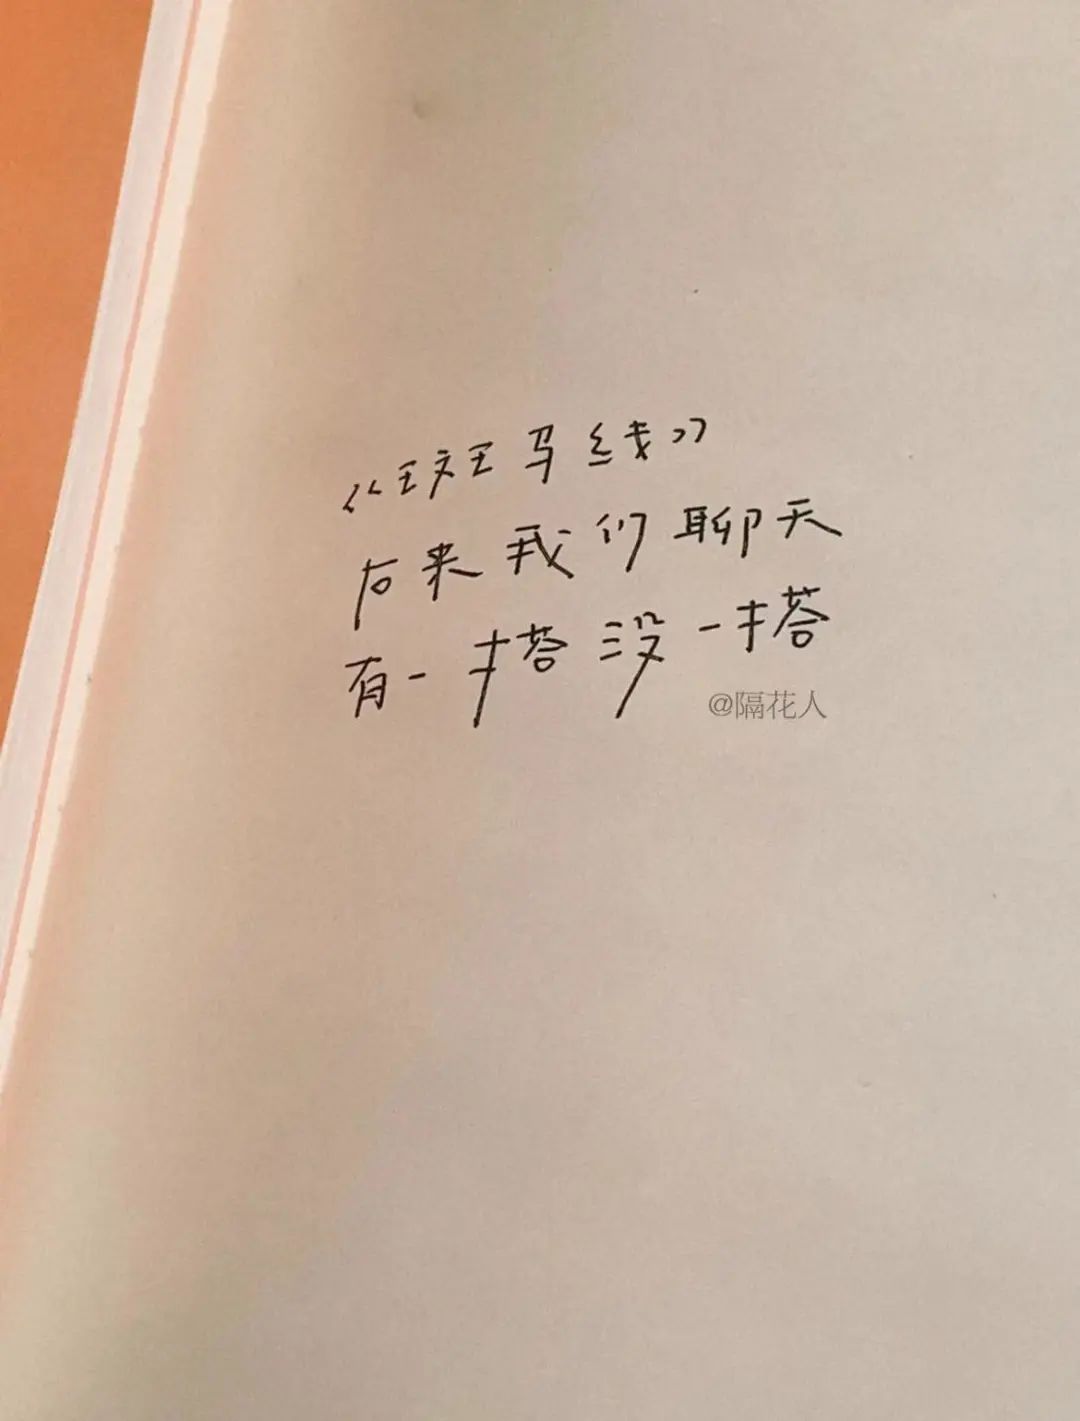 《斑马线》
后来我们聊天
有一搭没一搭
@隔花人